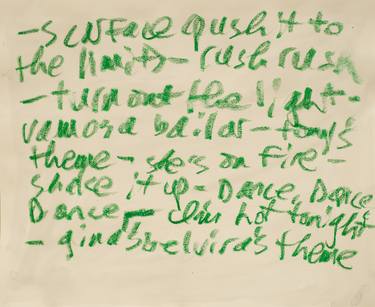 -scarface push it to
the limits- rush rush
- turn out the light -
vamos a bailar - tony's
theme - shes on fire -
shake it up - Dance, Dance
Dance - elvir hot tonight
- gina's belvira's theme